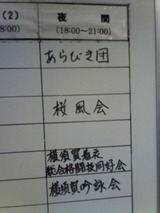 (2)
夜間
8:00)
(18:00〜21:00)
あらびき団
桜風会
横須賀着衣
総合格闘技同好会
横須賀吟詠会